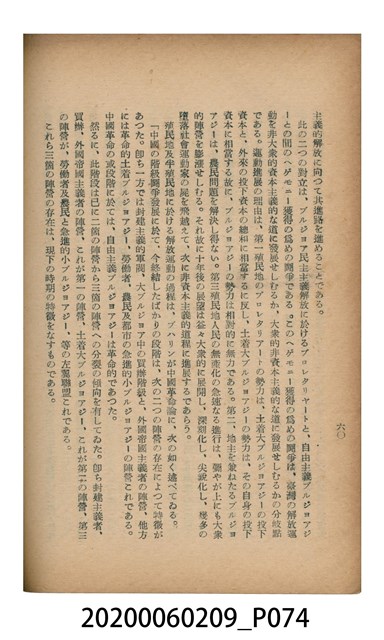 六〇
主義的解放に向つて其進路を進めることである。
此の二つの對立は、ブルジョア民主主義解放に於けるプロレタリヤートと、自由主義ブルジョアジ
ーとの間のヘゲモニー獲得の爲めの鬪爭である。このヘゲモニー獲得の爲めの鬪爭は、臺灣の解放運
動を非大衆的資本主義的な道に發展せしむるか、大衆的非資本主義的な道に發展せしむるかの分岐點
である。運動進展の理由は、第一殖民地のプロレタリアートの勢力は、土着大ブルジョアジーの投下
資本と、外來の投下資本の總和に相當するに反し、土着大ブルジョアジーの勢力は、その自身の投下
資本に相當する故に、ブルジョアジーの勢力は相對的に無力である。第二、地主を兼ねたるブルジョ
アジーは、農民問題を解決し得ない。第三殖民地人民の無産化の急速なる進行は、彌やが上にも大衆
的陣營を膨漲せしむる。それ故に十年後の展望は益々大衆的に展開し、深刻化し、尖鋭化し、幾多の
墮落社會運動家の屍を飛越えて、次に非資本主義的道程に進展するであらう。
殖民地及半殖民地に於ける解放運動の過程は、ブハリンが中國革命論に、次の如く述べてゐる。
「中國の階級鬪爭發展に於て、今終結したばかりの段階は、次の二つの陣營の存在によつて特徴が
あつた。卽ち一方では封建主義的軍閥、大ブルジョア中の買辦階級と、外國帝國主義者の陣營、他方
には革命的土着大ブルジョアジー、勞働者、農民及都市の急進的小ブルジョアジーの陣營これである。
中國革命の或段階に於ては、自由主義ブルジョアジーは革命的であつた。
然るに、此階段は已に二箇の陣營から三箇の陣營への分裂の傾向を有してゐた。卽ち封建主義者、
買辦、外國帝國主義者の陣營、これが第一の陣營、土着大ブルジョアジー、これが第二の陣營、第三
の陣營が、勞働者及農民と急進的小ブルジョアジー、等の左翼聯盟これである。
これら三箇の陣營の存在は、現下の時期の特徴をなすものである。
20200060209_P074